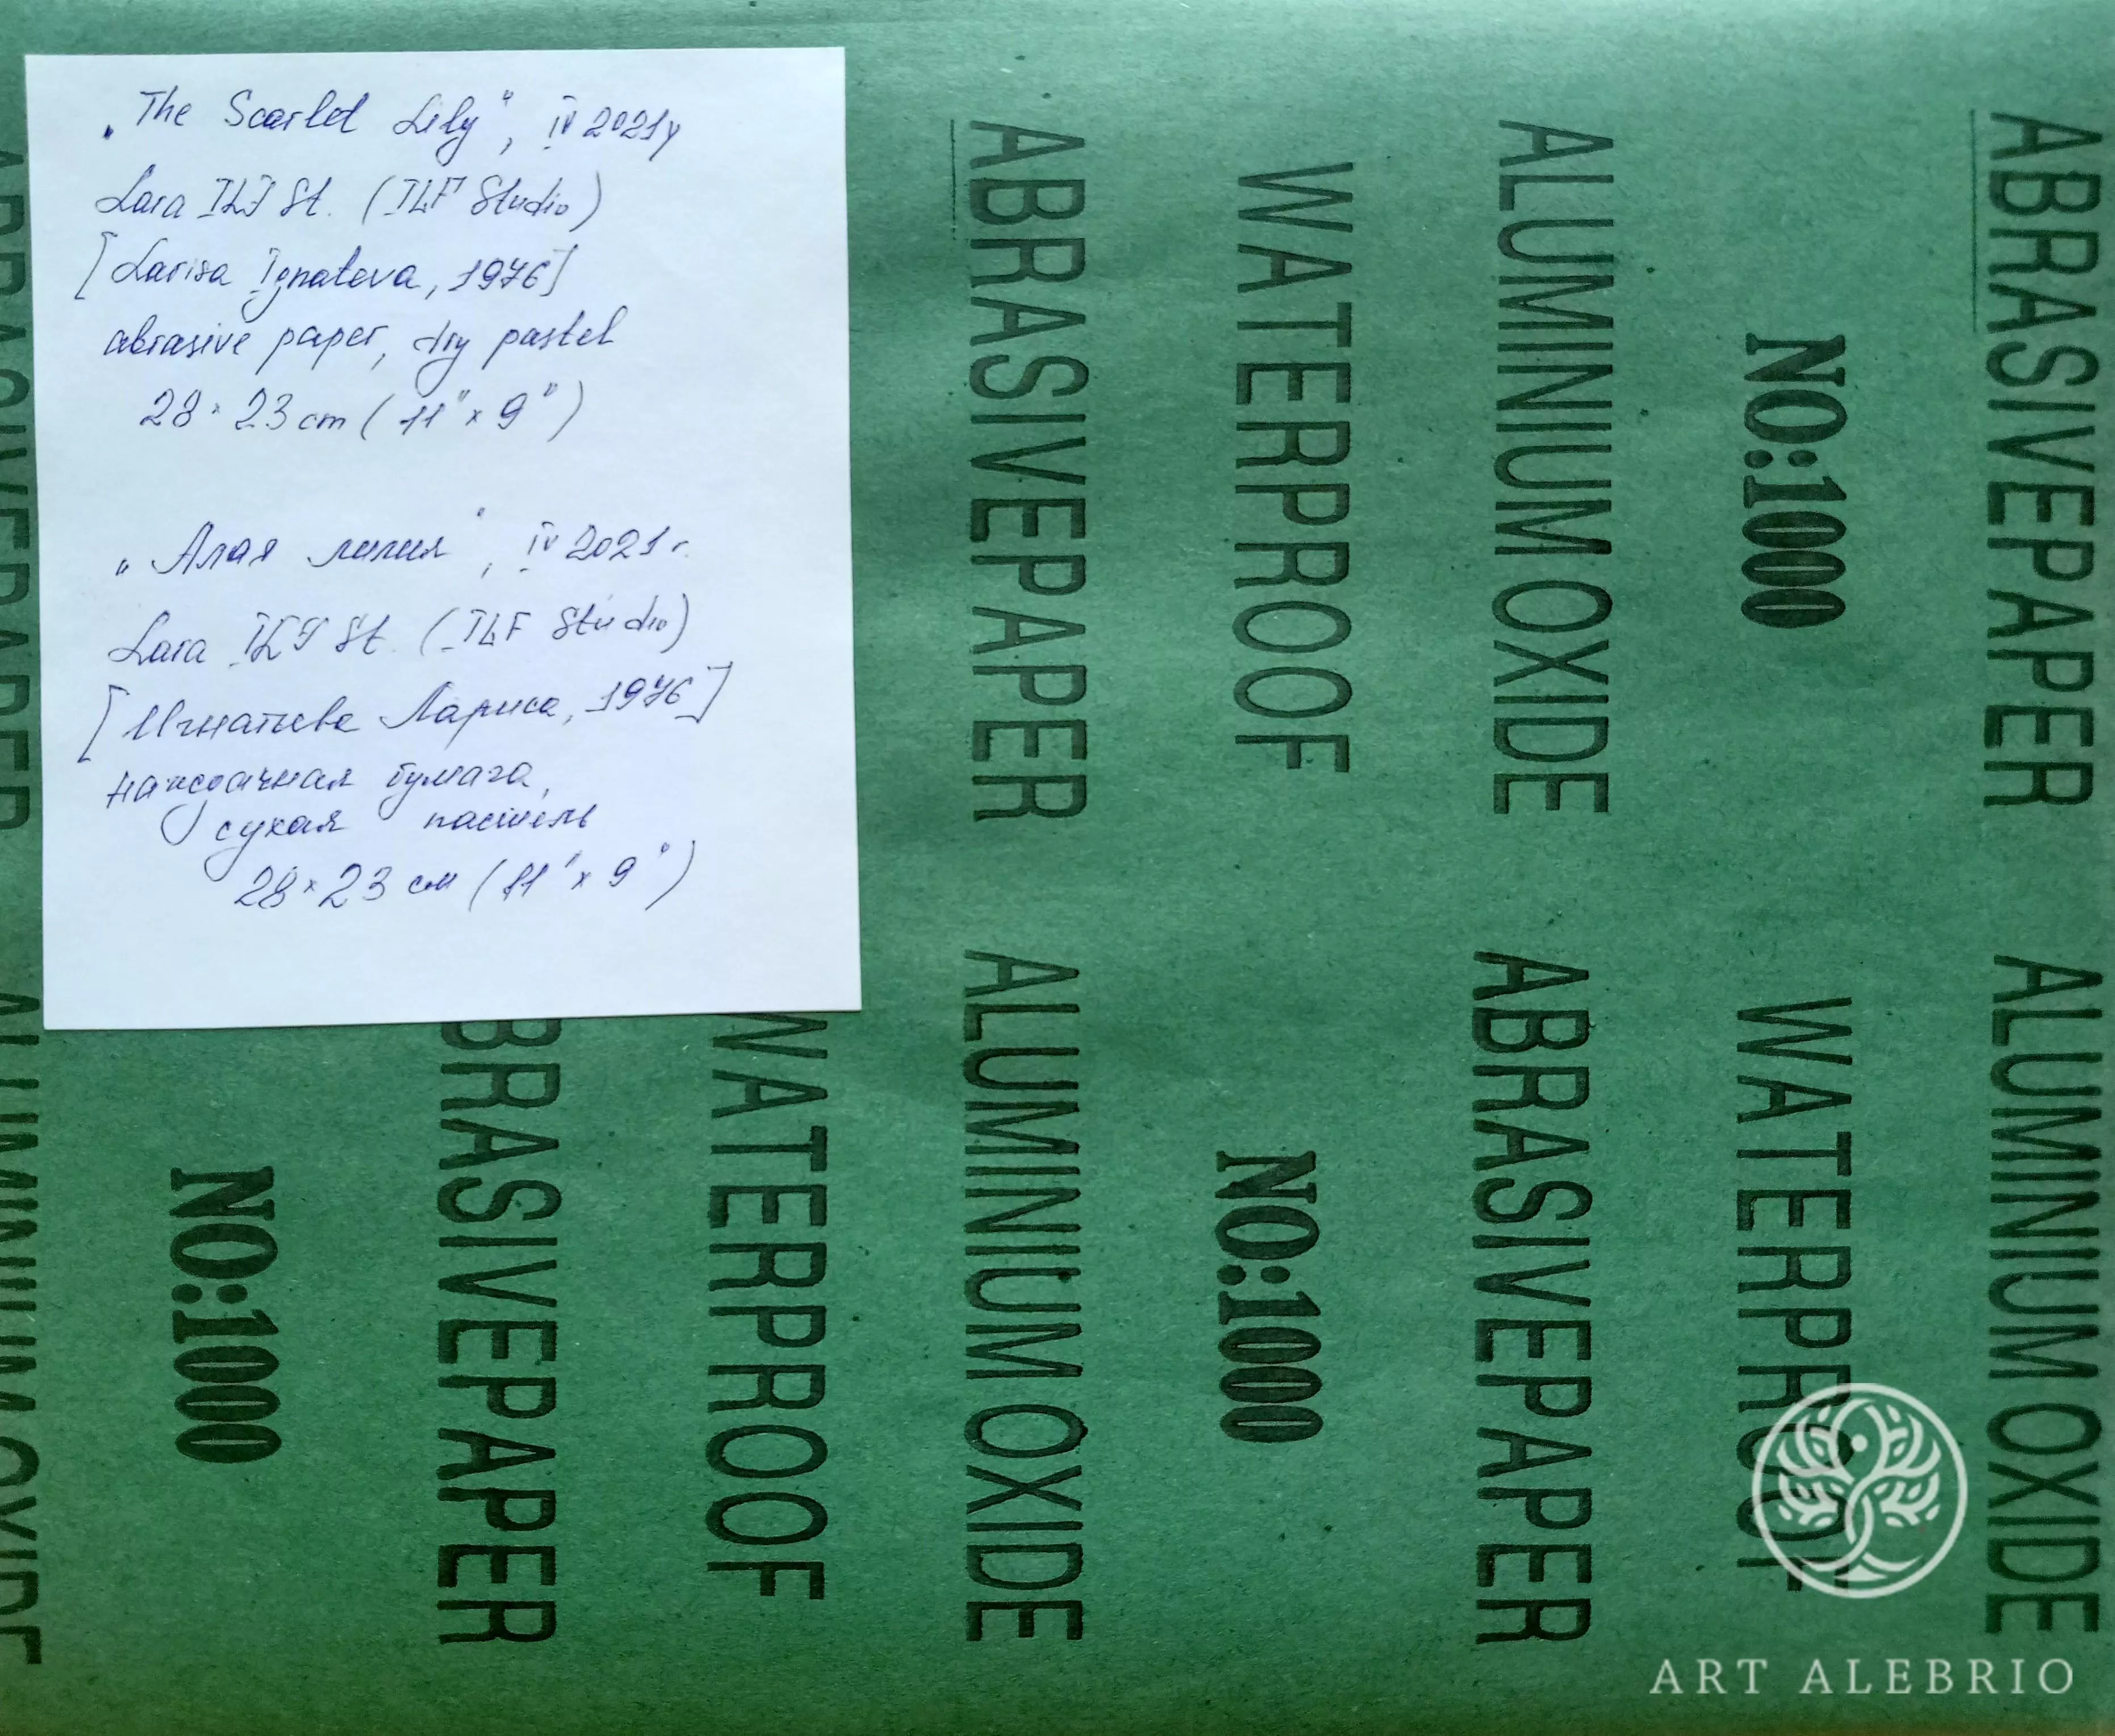 „The Scarlet Lily", IV 2021y
Lara ILF St. (ILF Studio)
[Larisa Ignateva, 1976]
abrasive paper, dry pastel
28 × 23 cm (11" × 9")
„Алая лилия", IV 2021 г.
Lara ILF St. (ILF Studio)
[Игнатьева Лариса, 1976]
наждачная бумага,
сухая пастель
28 × 23 см (11" × 9")
ABRASIVEPAPER
ALUMINIUM OXIDE
NO:1000
BRASIVEPAPER
WATERPROOF
ABRASIVEPAPER
ALUMINIUM OXIDE
WATERPROOF
NO:1000
ALUMINIUM OXIDE
ABRASIVEPAPER
NO:1000
WATERPROOF
ABRASIVEPAPER
ALUMINIUM OXIDE
ART ALEBRIO